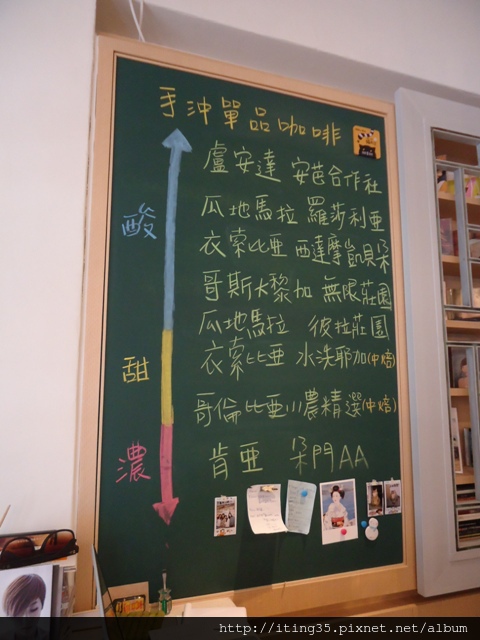 手沖單品咖啡
盧安達 安芭合作社
瓜地馬拉 羅莎利亞
酸
衣索比亞 西達摩凱貝朵
哥斯大黎加 無限莊園
瓜地馬拉 彼拉莊園
甜
衣索比亞 水洗耶加(中焙)
哥倫比亞小農精選(中焙)
濃
肯亞 朵門AA
http://iting35.pixnet.net/album